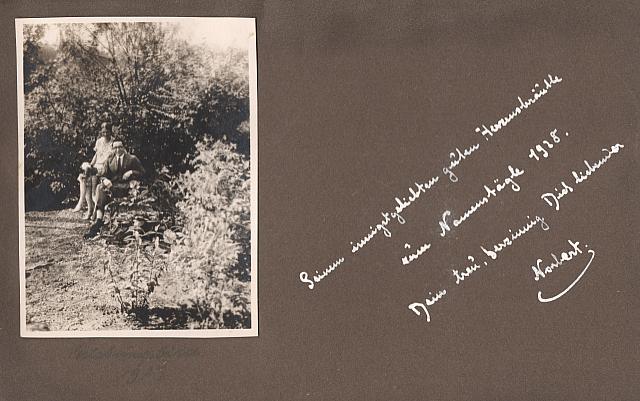 Seinem innigstgeliebten guten Herzensbräutle
zum Namenstägle 1928.
Dein treu, herzinnig Dich liebender
Norbert.